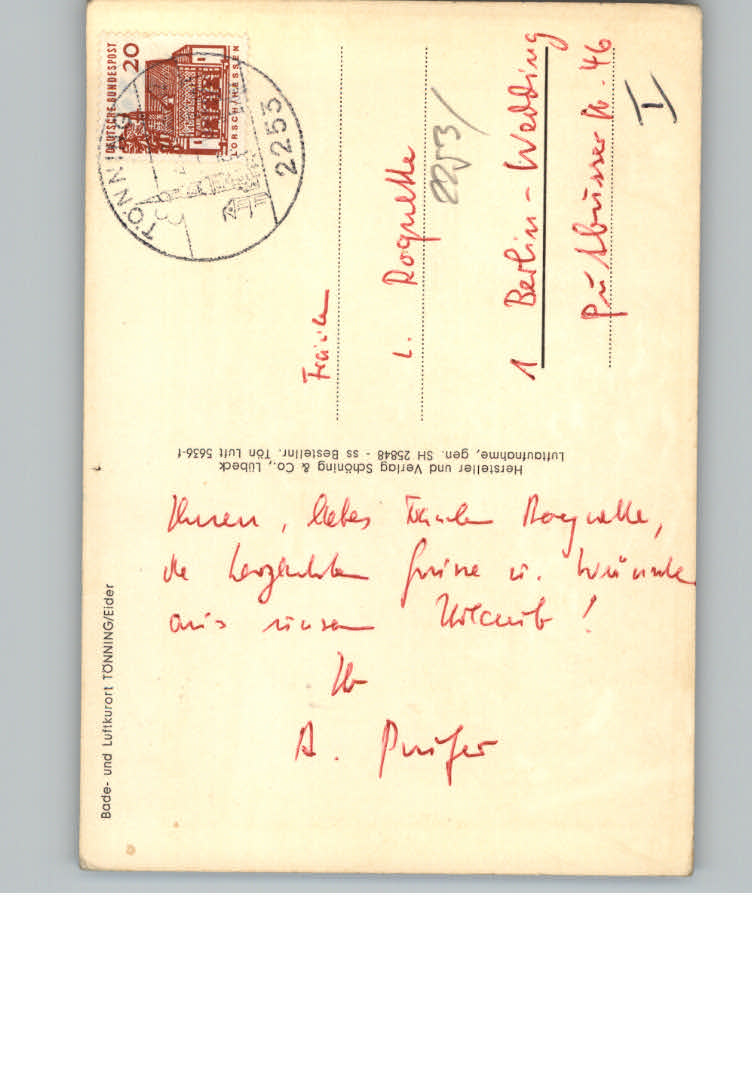 DEUTSCHE BUNDESPOST
20
LORSCH/HESSEN
TÖNNING
2253
Fräulein
L. Roquette
2253/
1 Berlin-Wedding
Puttbusser Str. 46
I
Hersteller und Verlag Schöning & Co., Lübeck
Luftaufnahme, gen. SH 25848 - ss Bestellnr. Tön Luft 5636-f
Bade- und Luftkurort TÖNNING/Eider
Ihnen, liebes Fräulein Roquette,
die herzlichsten Grüsse u. Wünsche
aus unserem Urlaub!
Ihr
A. Prüfer